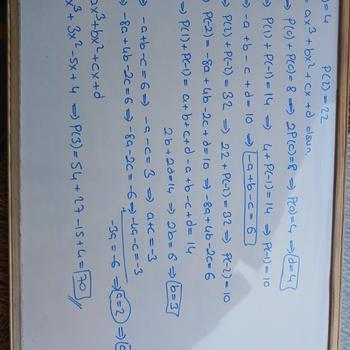 =4 P(2) = 22
= ax³+bx²+cx+d olsun
⇒ P(0)+P(0)=8 ⇒ 2P(0)=8 ⇒ P(0)=4 ⇒ d=4
⇒ P(1)+P(-1)=14 ⇒ 4+P(-1)=14 P(-1)=10
⇒ -a+b-c+d=10 ⇒ -a+b-c=6
⇒ P(2)+P(-2)=32 ⇒ 22+P(-2)=32 ⇒ P(-2)=10
P(-2)=-8a+4b-2c+d=10 ⇒ -8a+4b-2c=6
⇒ P(1)+P(-1)=a+b+c+d-a+b-c+d=14
2b+2d=14 ⇒ 2b=6 ⇒ b=3
⇒ -a+b-c=6 ⇒ -a-c=3 ⇒ a+c=-3
⇒ -8a+4b-2c=6 ⇒ -8a-2c=-6 ⇒ -4a-c=-3
-3a=-6 ⇒ a=2 ⇒
ax³+bx²+cx+d
x³+3x²-5x+4 ⇒ P(3)=54+27-15+4=70